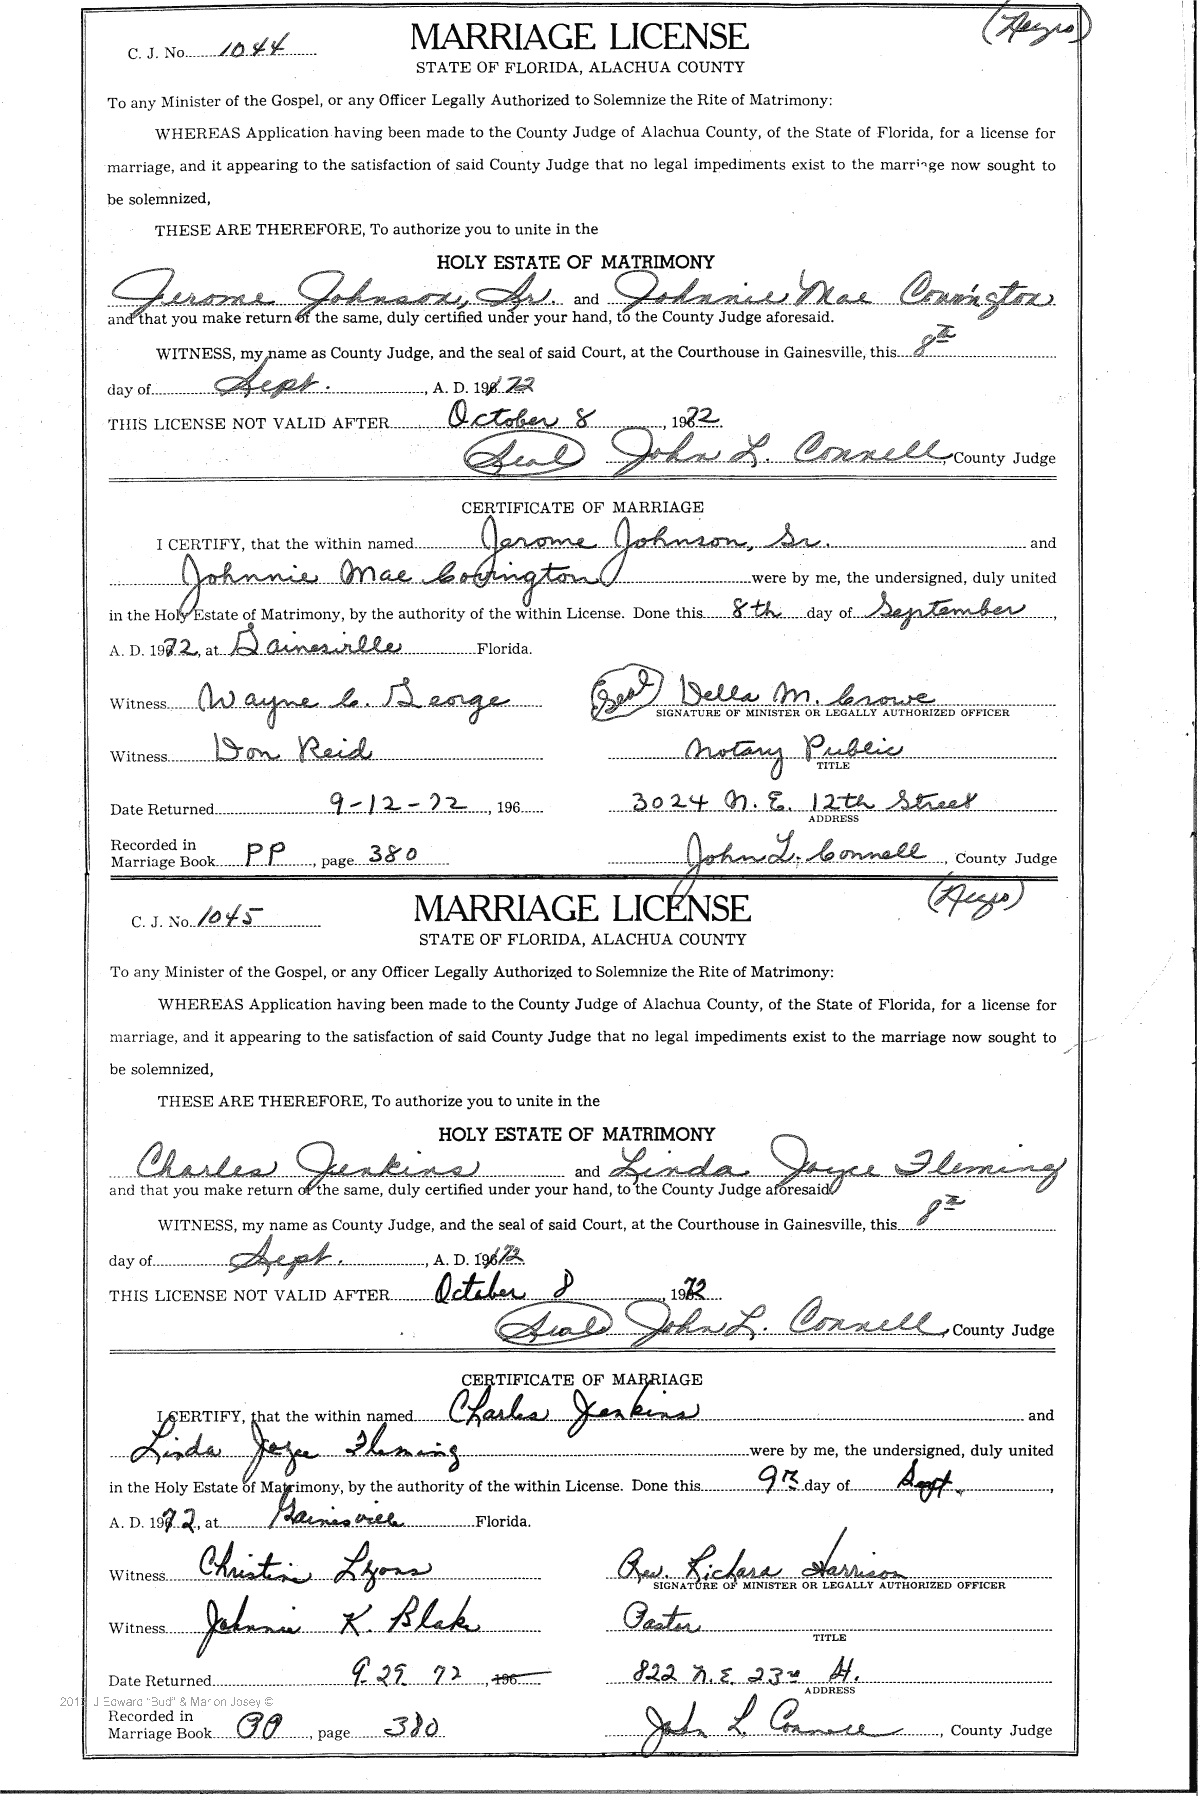 (Negro)
C. J. No. 1044
MARRIAGE LICENSE
STATE OF FLORIDA, ALACHUA COUNTY
To any Minister of the Gospel, or any Officer Legally Authorized to Solemnize the Rite of Matrimony:
WHEREAS Application having been made to the County Judge of Alachua County, of the State of Florida, for a license for
marriage, and it appearing to the satisfaction of said County Judge that no legal impediments exist to the marriage now sought to
be solemnized,
THESE ARE THEREFORE, To authorize you to unite in the
HOLY ESTATE OF MATRIMONY
Jerome Johnson, Sr. and Johnnie Mae Covington
and that you make return of the same, duly certified under your hand, to the County Judge aforesaid.
WITNESS, my name as County Judge, and the seal of said Court, at the Courthouse in Gainesville, this 8th
day of Sept. , A. D. 1972
THIS LICENSE NOT VALID AFTER October 8 , 1972
(Seal) John L. Connell, County Judge
CERTIFICATE OF MARRIAGE
I CERTIFY, that the within named Jerome Johnson, Sr. and
Johnnie Mae Covington were by me, the undersigned, duly united
in the Holy Estate of Matrimony, by the authority of the within License. Done this 8th day of September ,
A. D. 1972, at Gainesville Florida.
Witness Wayne C. George (Seal) Della M. Crowe
SIGNATURE OF MINISTER OR LEGALLY AUTHORIZED OFFICER
Witness Don Reid Notary Public
TITLE
Date Returned 9-12-72 , 196 3024 N. E. 12th Street
ADDRESS
Recorded in
Marriage Book PP , page 380 John L. Connell , County Judge
(Negro)
C. J. No. 1045
MARRIAGE LICENSE
STATE OF FLORIDA, ALACHUA COUNTY
To any Minister of the Gospel, or any Officer Legally Authorized to Solemnize the Rite of Matrimony:
WHEREAS Application having been made to the County Judge of Alachua County, of the State of Florida, for a license for
marriage, and it appearing to the satisfaction of said County Judge that no legal impediments exist to the marriage now sought to
be solemnized,
THESE ARE THEREFORE, To authorize you to unite in the
HOLY ESTATE OF MATRIMONY
Charles Jenkins and Linda Joyce Fleming
and that you make return of the same, duly certified under your hand, to the County Judge aforesaid
WITNESS, my name as County Judge, and the seal of said Court, at the Courthouse in Gainesville, this 8th
day of Sept. , A. D. 1972
THIS LICENSE NOT VALID AFTER October 8 , 1972
(Seal) John L. Connell, County Judge
CERTIFICATE OF MARRIAGE
I CERTIFY, that the within named Charles Jenkins and
Linda Joyce Fleming were by me, the undersigned, duly united
in the Holy Estate of Matrimony, by the authority of the within License. Done this 9th day of Sept. ,
A. D. 1972, at Gainesville Florida.
Witness Christin Lyons Rev. Richard Harrison
SIGNATURE OF MINISTER OR LEGALLY AUTHORIZED OFFICER
Witness Johnnie K. Blake Pastor
TITLE
Date Returned 9-29 72 , 196 822 N. E. 23rd St.
ADDRESS
J Edward "Bud" & Marion Josey ©
Recorded in
Marriage Book PP , page 380 John L. Connell , County Judge